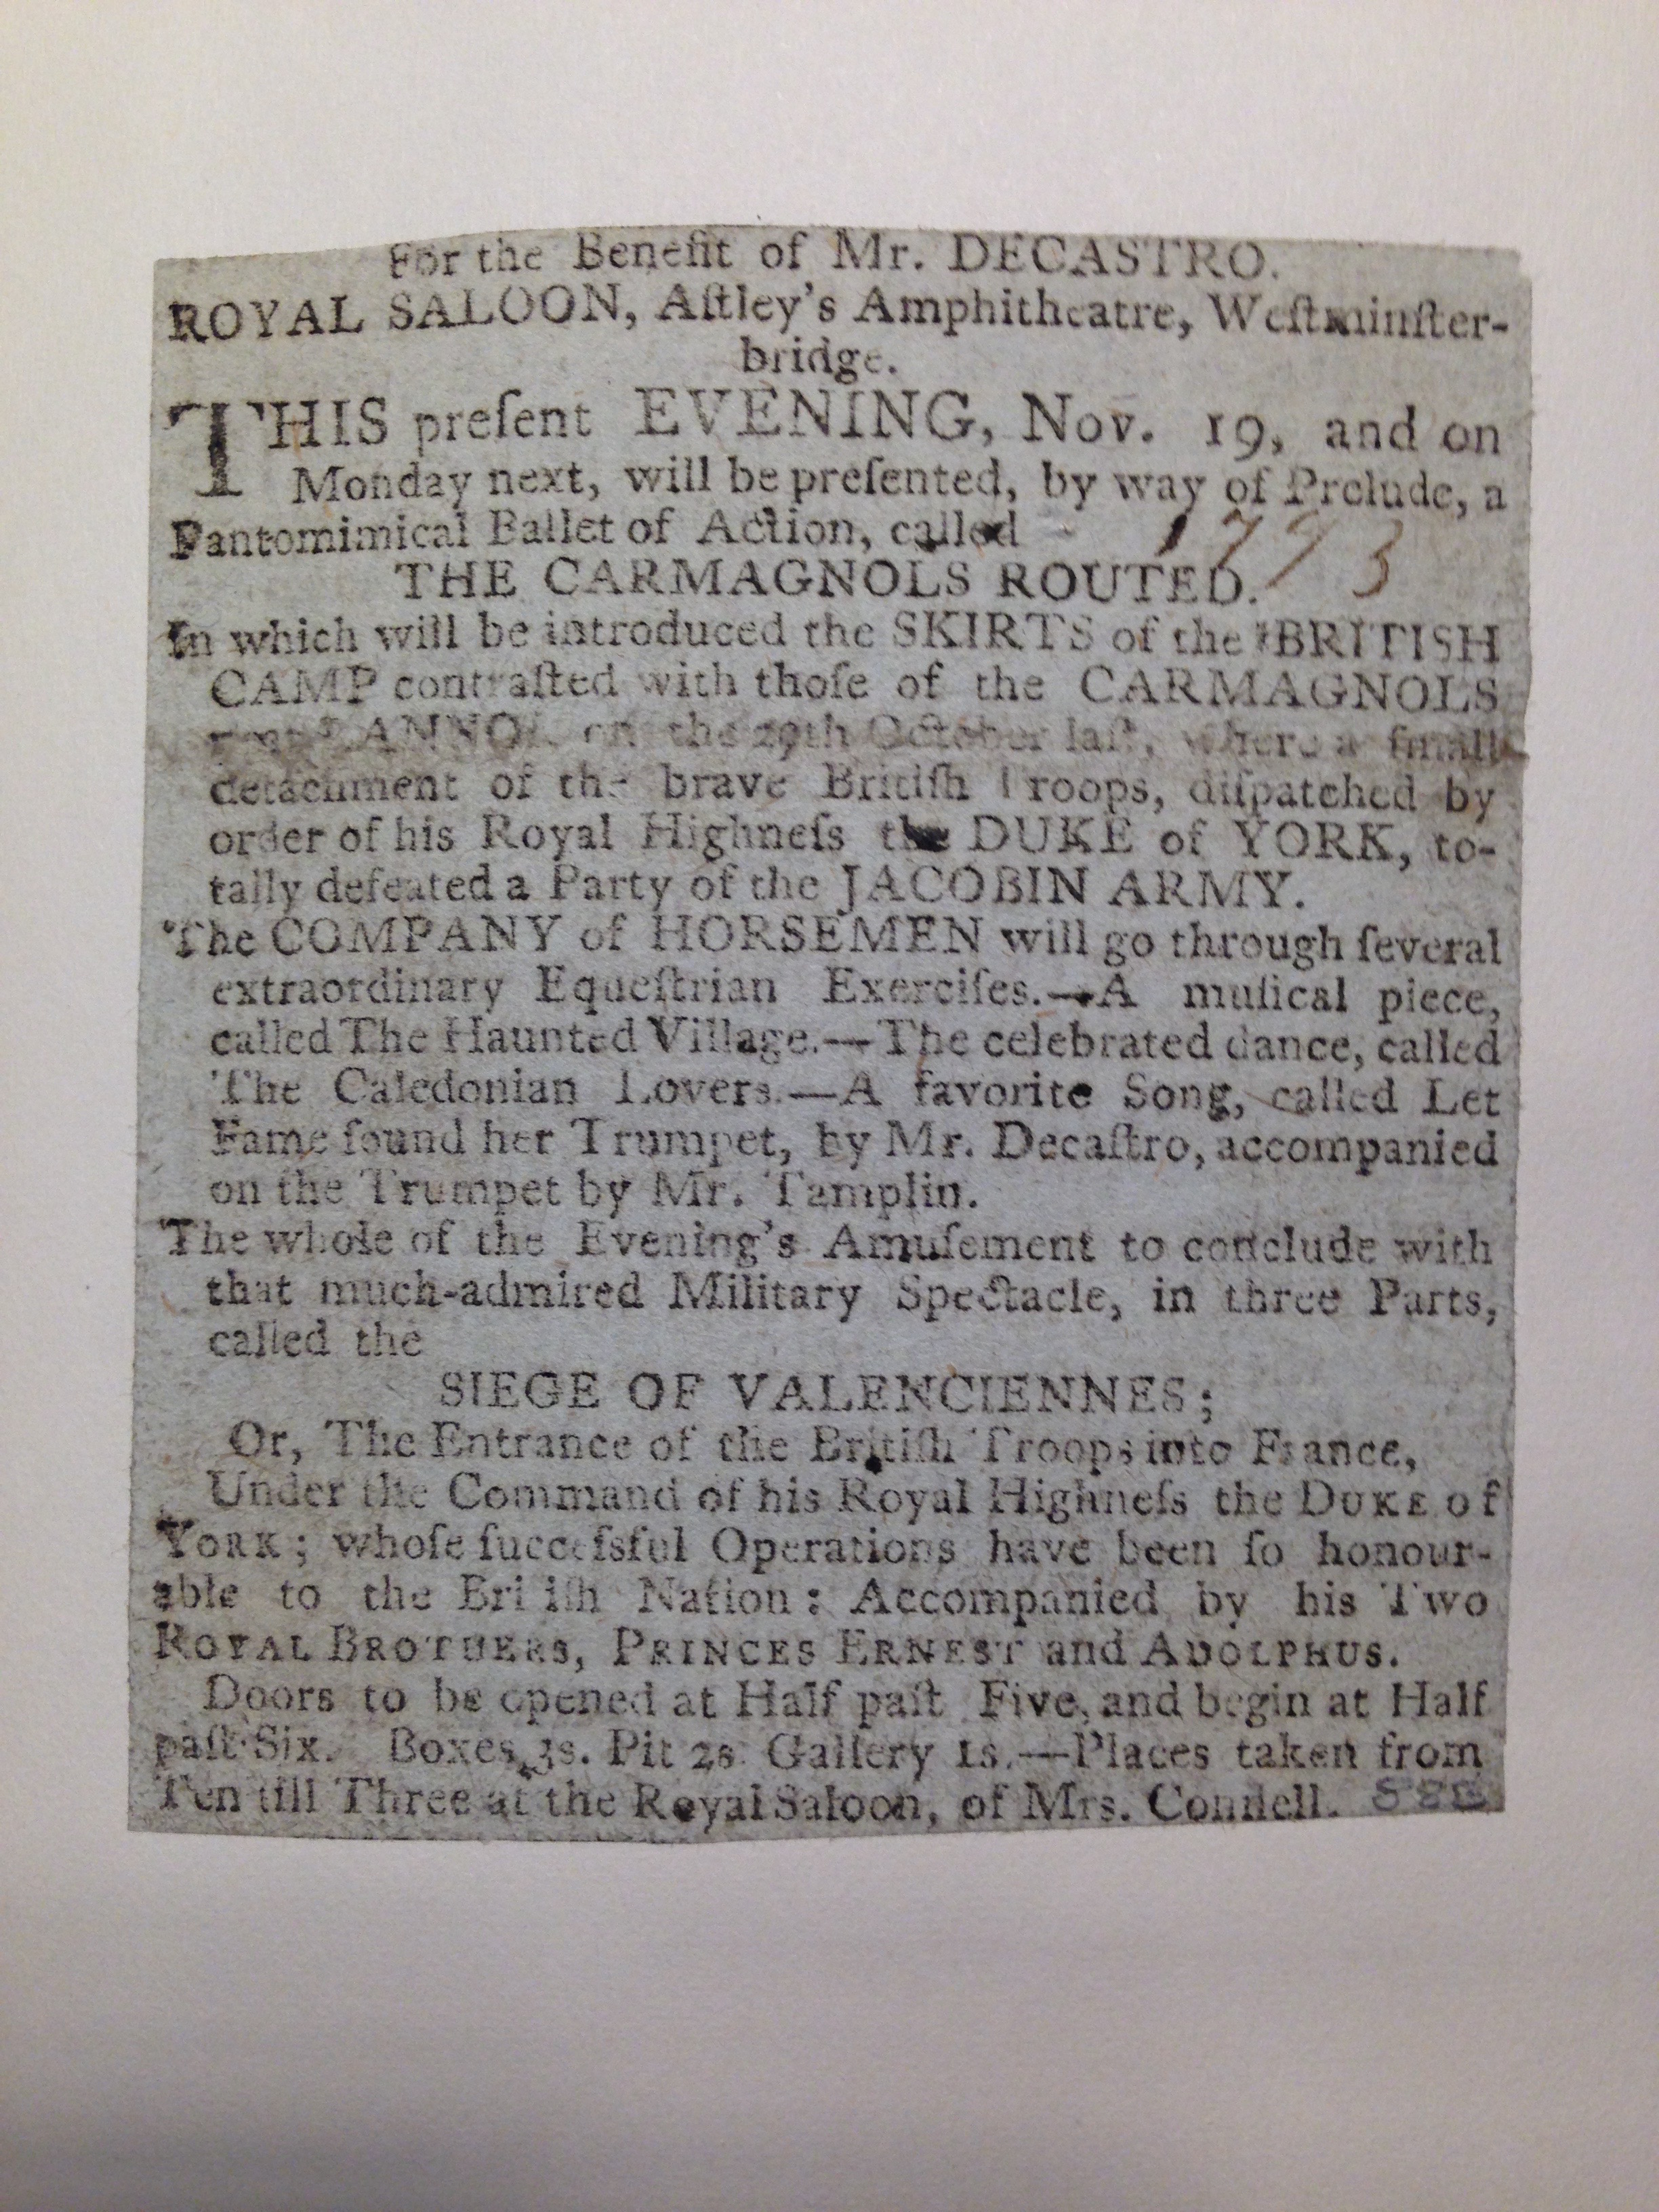 For the Benefit of Mr. DECASTRO.
ROYAL SALOON, Aſtley's Amphitheatre, Weſtminſter-
bridge.
THIS preſent EVENING, Nov. 19, and on
Monday next, will be preſented, by way of Prelude, a
Pantomimical Ballet of Action, called
1793
THE CARMAGNOLS ROUTED.
In which will be introduced the SKIRTS of the BRITISH
CAMP contraſted with thoſe of the CARMAGNOLS
on the 29th October laſt, where a ſmall
detachment of the brave Britiſh Troops, diſpatched by
order of his Royal Highneſs the DUKE of YORK, to-
tally defeated a Party of the JACOBIN ARMY.
The COMPANY of HORSEMEN will go through ſeveral
extraordinary Equeſtrian Exerciſes.—A muſical piece,
called The Haunted Village.—The celebrated dance, called
The Caledonian Lovers.—A favorite Song, called Let
Fame ſound her Trumpet, by Mr. Decaſtro, accompanied
on the Trumpet by Mr. Tamplin.
The whole of the Evening's Amuſement to conclude with
that much-admired Military Spectacle, in three Parts,
called the
SIEGE OF VALENCIENNES;
Or, The Entrance of the Britiſh Troops into France,
Under the Command of his Royal Highneſs the DUKE of
YORK; whoſe ſucceſsful Operations have been ſo honour-
able to the Britiſh Nation: Accompanied by his Two
ROYAL BROTHERS, PRINCES ERNEST and ADOLPHUS.
Doors to be opened at Half paſt Five, and begin at Half
paſt Six. Boxes 3s. Pit 2s. Gallery 1s.—Places taken from
Ten till Three at the Royal Saloon, of Mrs. Connell.